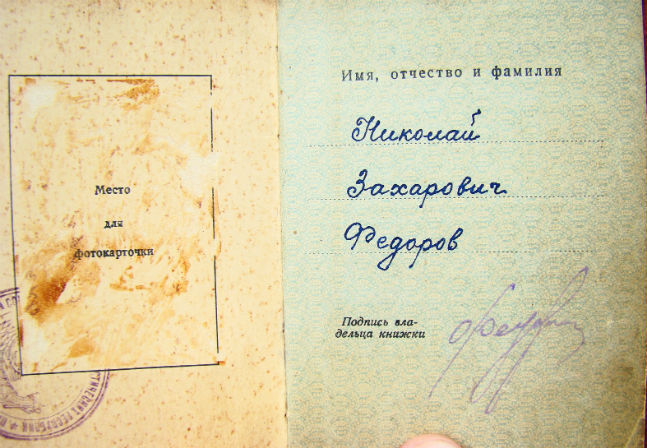 Место
для
фотокарточки
Имя, отчество и фамилия
Николай
Захарович
Федоров
Подпись вла-
дельца книжки